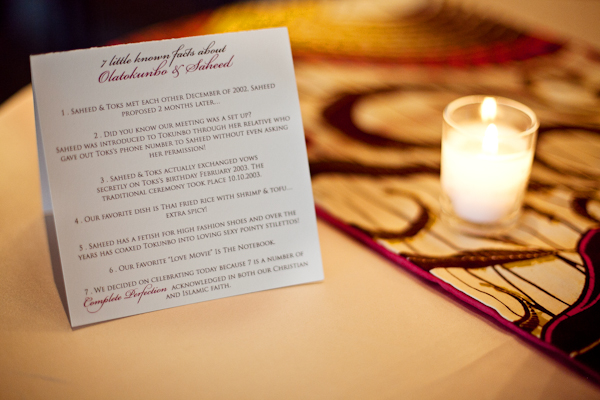 7 little known facts about
Olatokunbo & Saheed
1 . Saheed & Toks met each other December of 2002. Saheed
proposed 2 months later...
2 . Did you know our meeting was a set up?
Saheed was introduced to Tokunbo through her relative who
gave out Toks's phone number to Saheed without even asking
her permission!
3 . Saheed & Toks actually exchanged vows
secretly on Toks's birthday February 2003. The
traditional ceremony took place 10.10.2003.
4 . Our favorite dish is Thai fried rice with shrimp & tofu....
extra spicy!
5 . Saheed has a fetish for high fashion shoes and over the
years has coaxed Tokunbo into loving sexy pointy stilettos!
6 . Our Favorite "Love Movie" Is The Notebook.
7 . We decided on celebrating today because 7 is a number of
Complete Perfection acknowledged in both our Christian
and Islamic Faith.